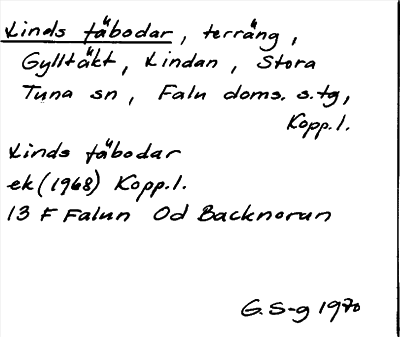 Linds fäbodar, terräng,
Gylltäkt, Lindan, Stora
Tuna sn, Falu doms. s. tg,
Kopp.l.
Linds fäbodar
ek (1968) Kopp.l.
13 F Falun Od Backnorun
G. S-g 1970